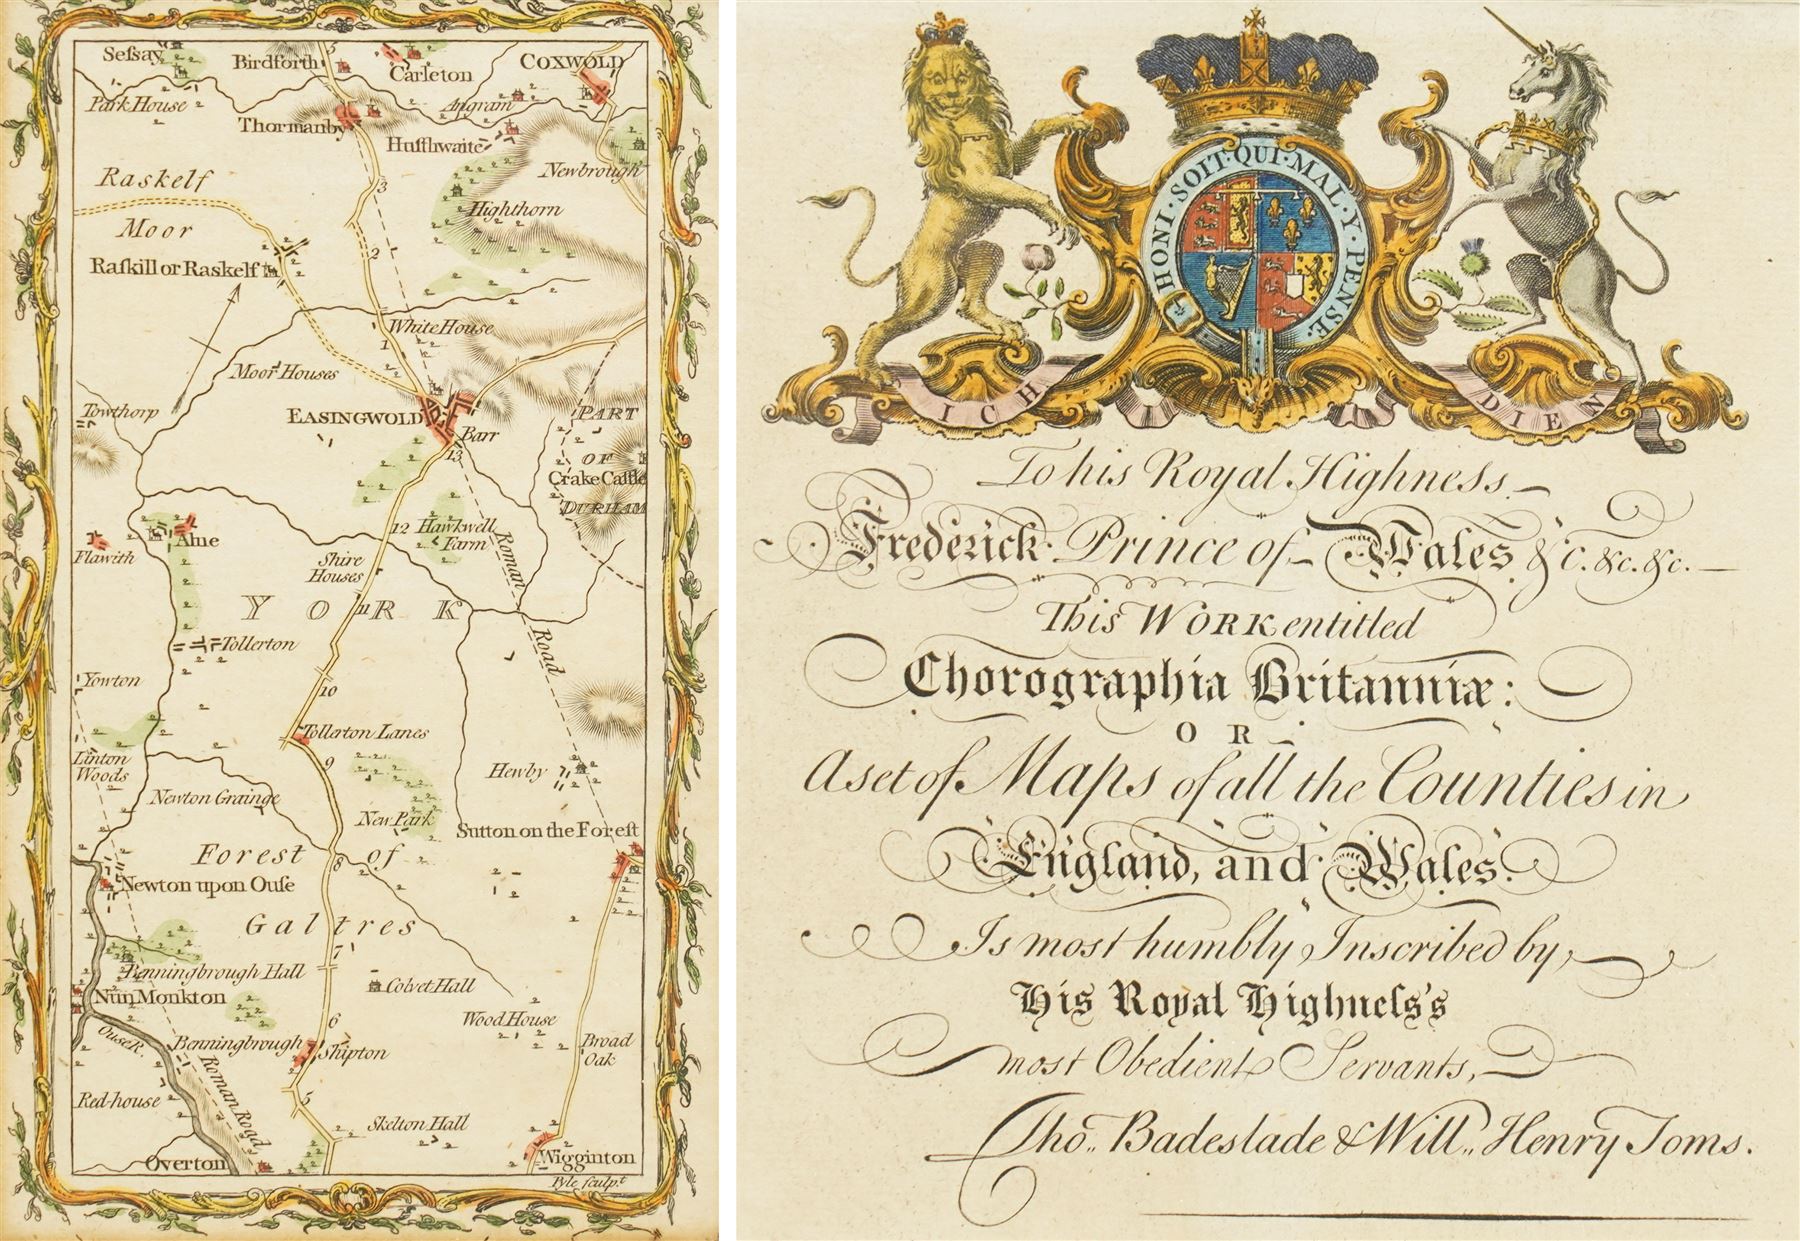 Seſsay
Birdforth
5
Carleton
COXWOLD
Park House
Angram
Thormanby
Huſthwaite
Newbrough
Raskelf
3
Highthorn
Moor
2
Raſkill or Raskelf
White House
1
Moor Houses
Towthorp
EASINGWOLD
PART
Barr
13
OF
Crake Caſtle
DURHAM
12
Hawkwell
Farm
Roman
Flawith
Alne
Shire
Houses
11
YORK
Road
Tollerton
Yowton
10
Tollerton Lanes
9
Linton
Woods
Hewby
Newton Grainge
New Park
Sutton on the Foreſt
Forest of
8
Newton upon Ouſe
Galtres
7
Benningbrough Hall
Colvet Hall
Nun Monkton
6
Wood House
Ouse R.
Benningbrough
Shipton
Broad
Oak
Roman Road
Red-house
5
Skelton Hall
Overton
Wigginton
Pyle ſculp.t
HONI·SOIT·QUI·MAL·Y·PENSE·
ICH DIEN
To his Royal Highness
Frederick Prince of Wales &c. &c. &c.
This WORK entitled
Chorographia Britanniæ:
OR
A set of Maps of all the Counties in
England, and Wales.
Is most humbly Inscribed by
His Royal Highneſs's
most Obedient Servants,
Tho.. Badeslade & Will.. Henry Toms.